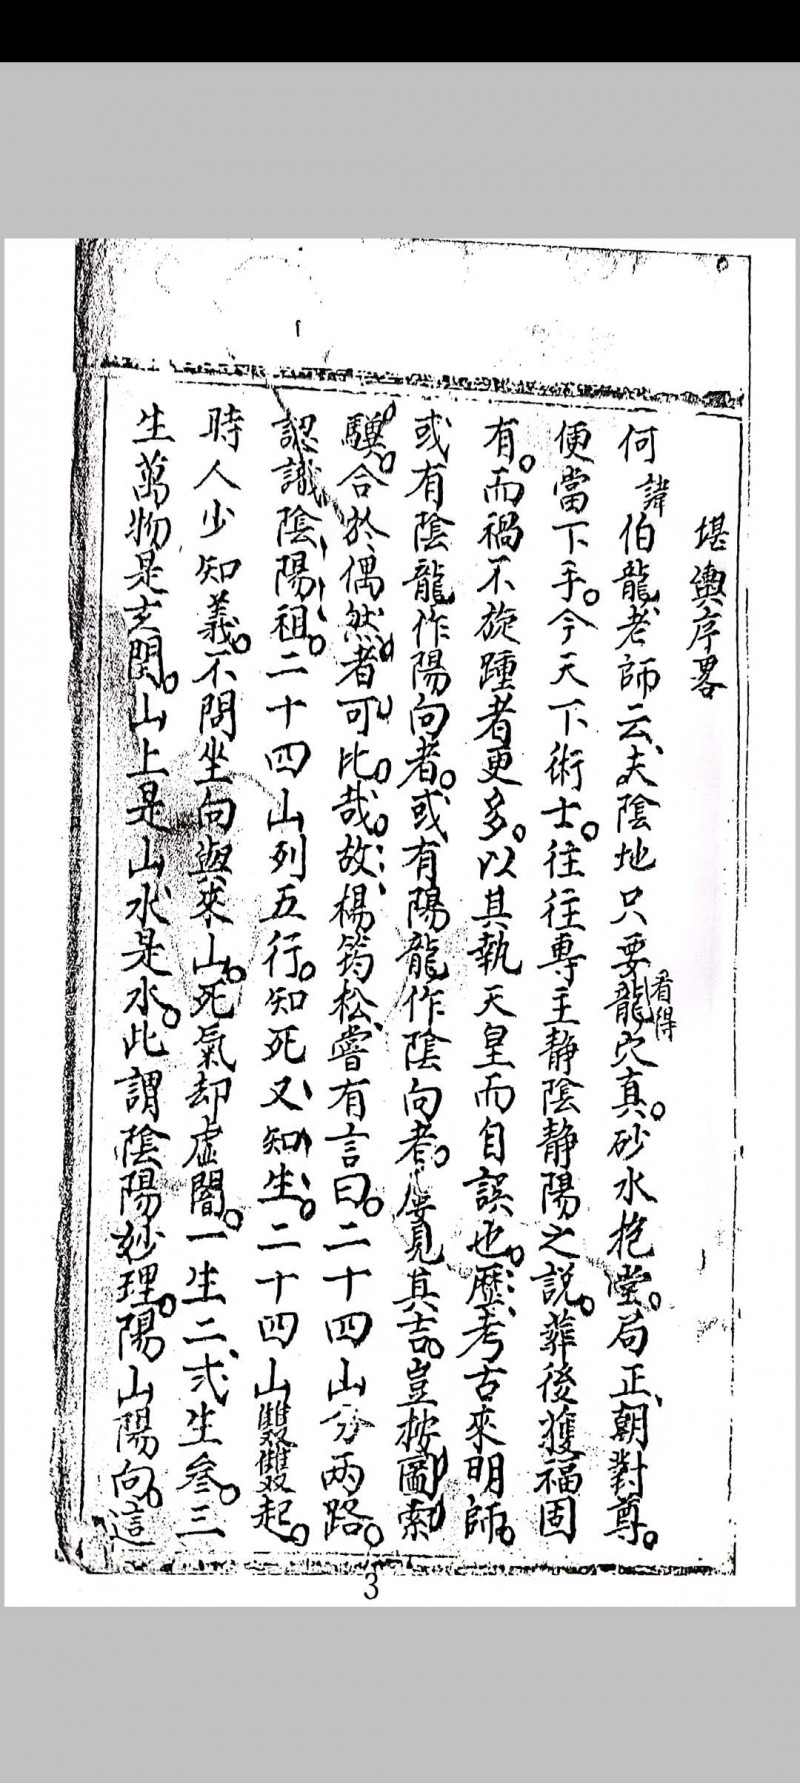 堪輿序畧
何諱伯龍老師云、夫陰地只要看得龍穴真。砂水抱堂。局正、朝對尊。
便當下手。今天下術士。往往專主靜陰靜陽之說。葬後獲福固
有。而禍不旋踵者更多。以其執天皇而自誤也。歷考古來明師。
或有陰龍作陽向者。或有陽龍作陰向者。屢見其吉。豈按圖索
驥。合於偶然者可比哉。故楊筠松嘗有言曰。二十四山分兩路。
認識陰陽祖。二十四山列五行。知死又知生。二十四山雙雙起。
時人少知義。不問坐向與來山。死氣却虛闇。一生二、弍生叄。三
生萬物是玄関。山上是山、水是水。此謂陰陽妙理。陽山陽向。這
3